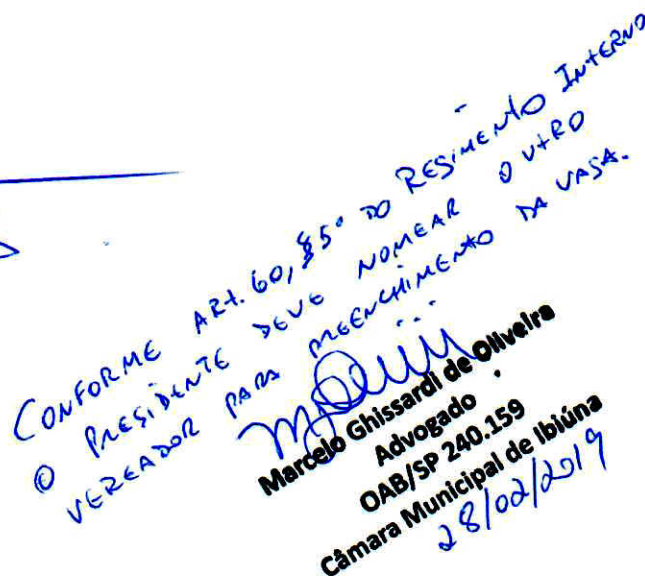 CONFORME ART. 60, §5º DO REGIMENTO INTERNO
O PRESIDENTE DEVE NOMEAR OUTRO
VEREADOR PARA PREENCHIMENTO DA VAGA.
Marcelo Ghissardi de Oliveira
Advogado
OAB/SP 240.159
Câmara Municipal de Ibiúna
28/02/2019